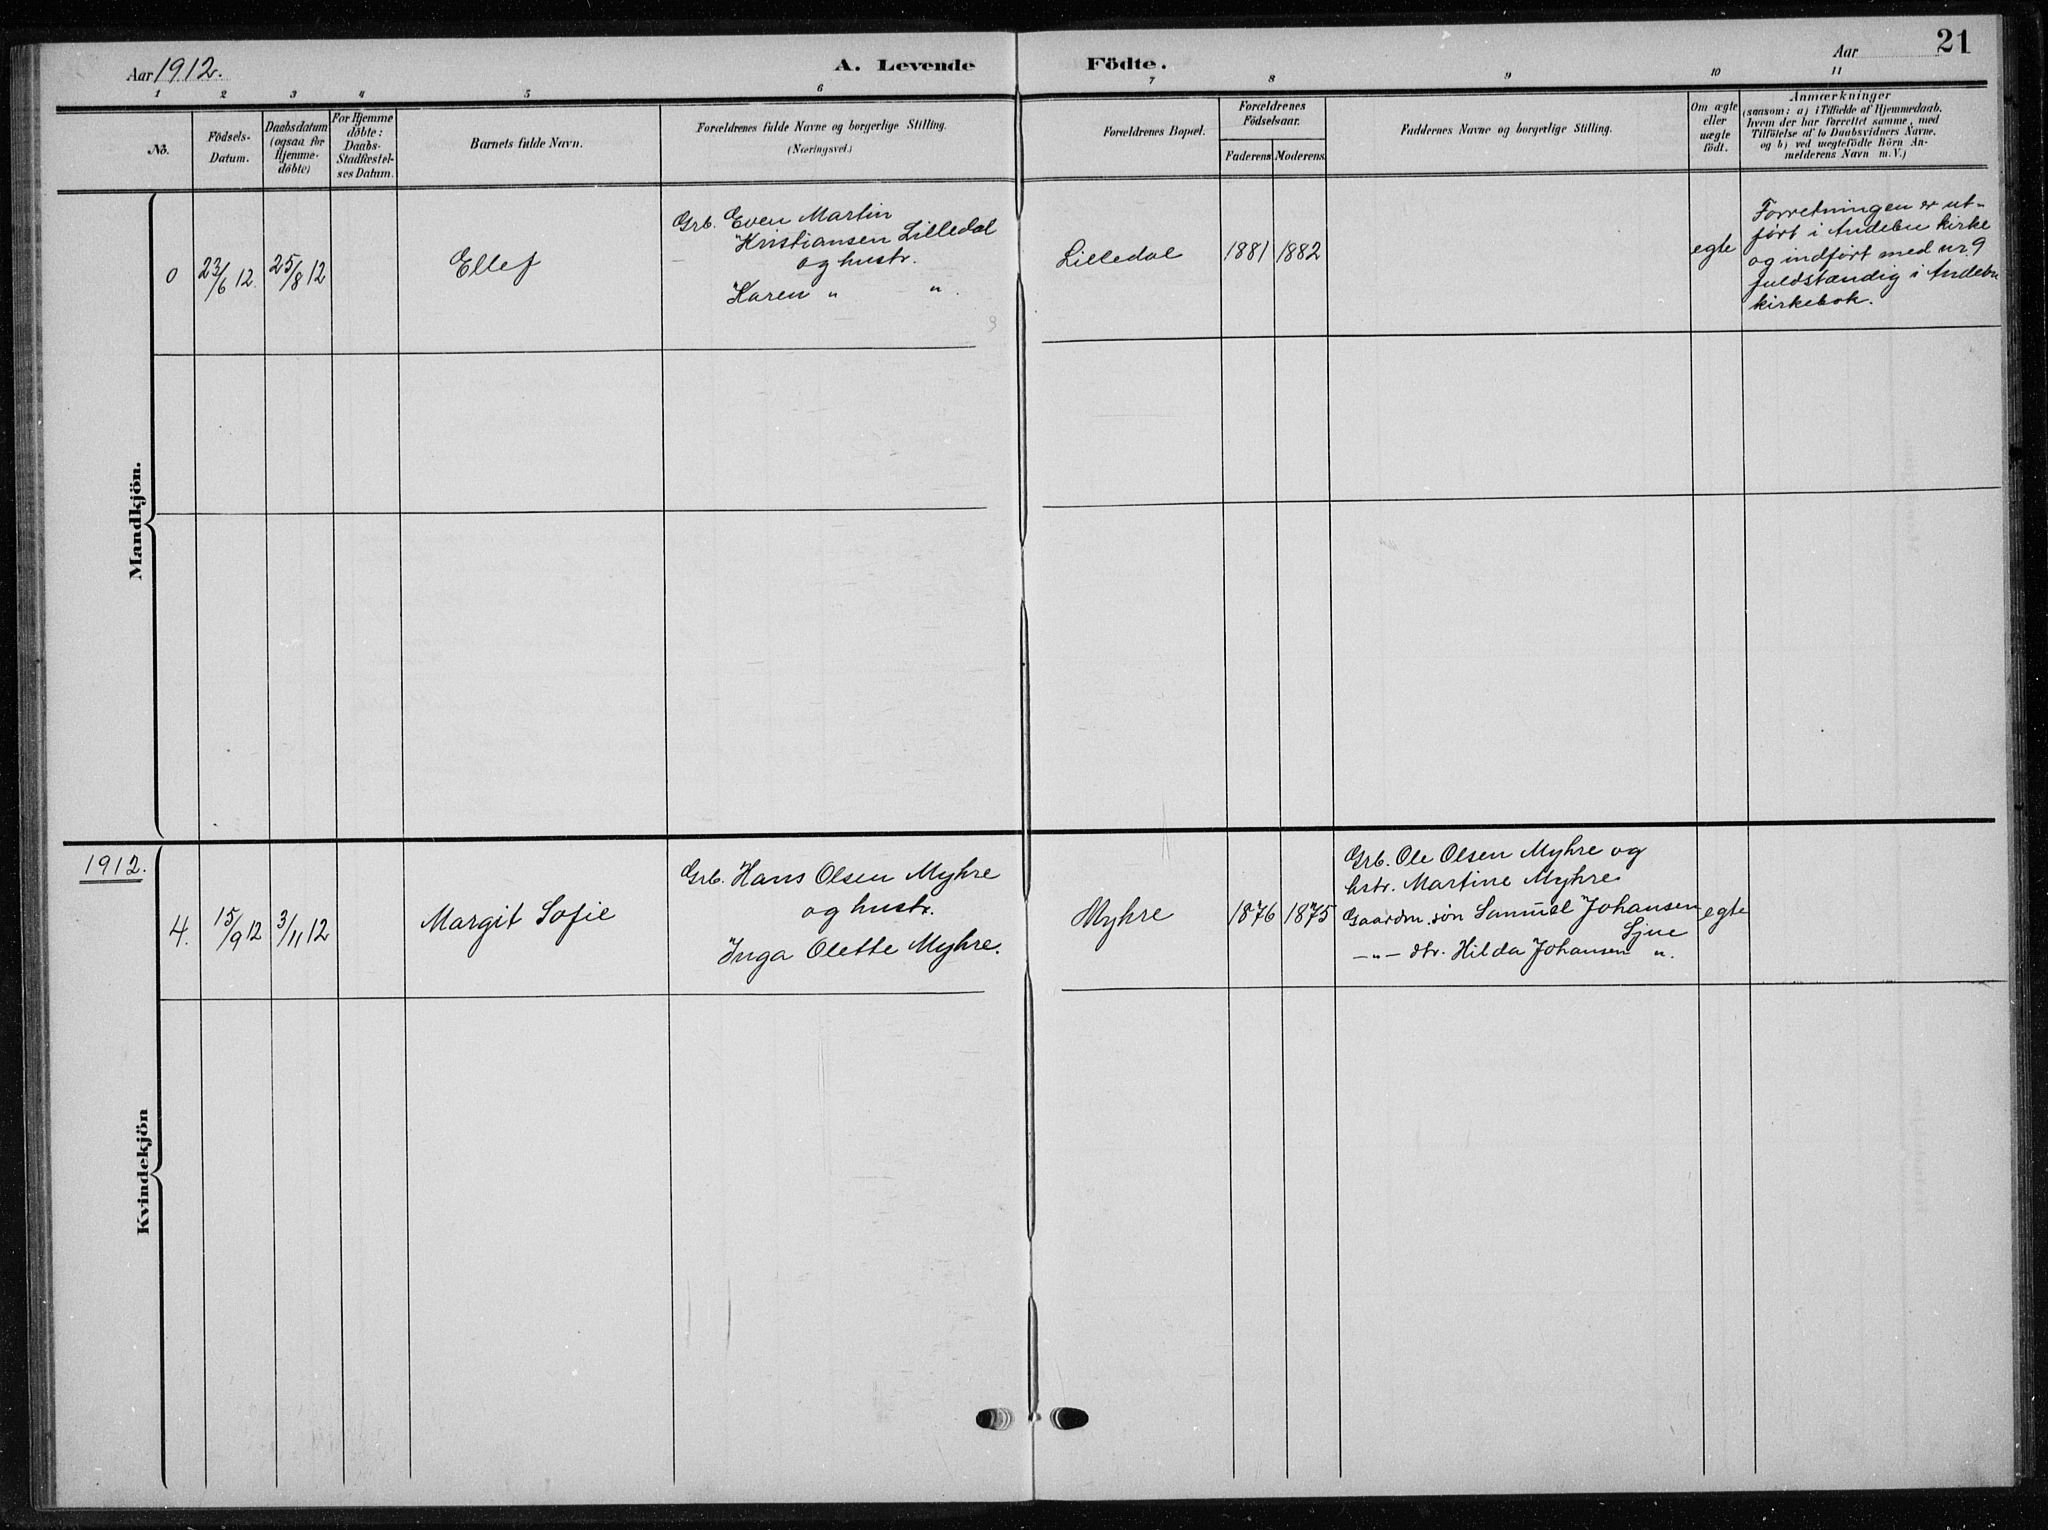 Aar 1912.
A. Levende Födte.
Aar
21
1 2 3 4 5 6 7 8 9 10 11
No.
Födsels-
Datum.
Daabsdatum
(ogsaa for
Hjemme-
döbte)
For Hjemme
döbte:
Daabs-
Stadfæstel-
ses Datum.
Barnets fulde Navn.
Forældrenes fulde Navne og borgerlige Stilling.
(Næringsvei.)
Forældrenes Bopæl.
Forældrenes
Födselsaar.
Faderens. Moderens.
Faddernes Navne og borgerlige Stilling.
Om ægte
eller
uægte
födt.
Anmærkninger
(saasom: a) i Tilfælde af Hjemmedaab.
hvem der har forrettet samme, med
Tilföielse af to Daabsvidners Navne.
og b) ved uægtefödte Börn An-
melderens Navn m. V.)
Mandkjön.
0
23/6 12.
25/8 12
Ellef
Grb. Even Martin
Kristiansen Lilledal
og hustr.
Karen " ".
Lilledal
1881
1882
egte
Forretningen er ut-
ført i Andebu kirke
og indført med nr. 9
fuldstændig i Andebu
kirkebok.
1912.
Kvindekjön
4.
15/9 12
3/11 12
Margit Sofie
Grb. Hans Olsen Myhre
og hustr.
Inga Olette Myhre.
Myhre
1876
1875
Grb. Ole Olsen Myhre og
hstr. Martine Myhre
Gaardm. søn Samuel Johansen
Sjue
—"— dtr. Hilda Johansen ".
egte